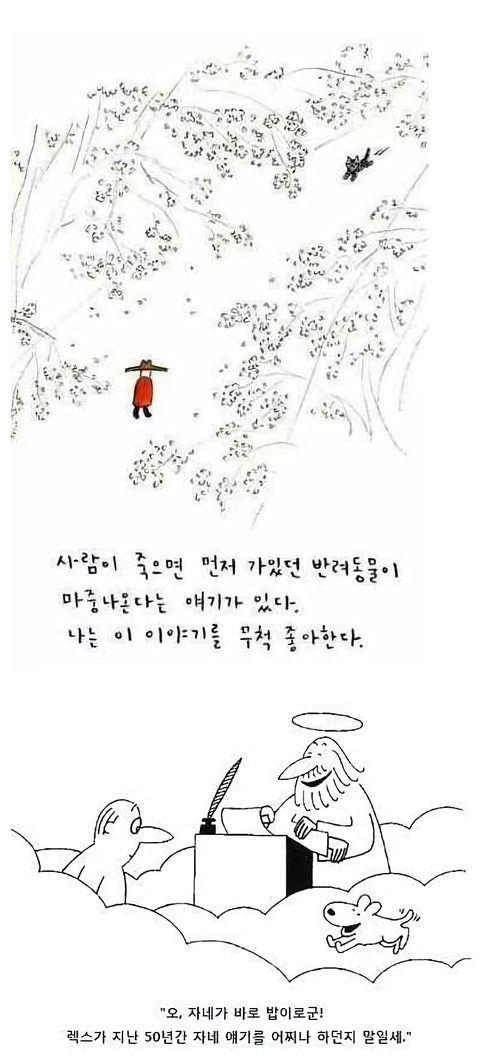 사람이 죽으면 먼저 가있던 반려동물이
마중나온다는 얘기가 있다.
나는 이 이야기를 무척 좋아한다.
"오, 자네가 바로 밥이로군!
렉스가 지난 50년간 자네 얘기를 어찌나 하던지 말일세."